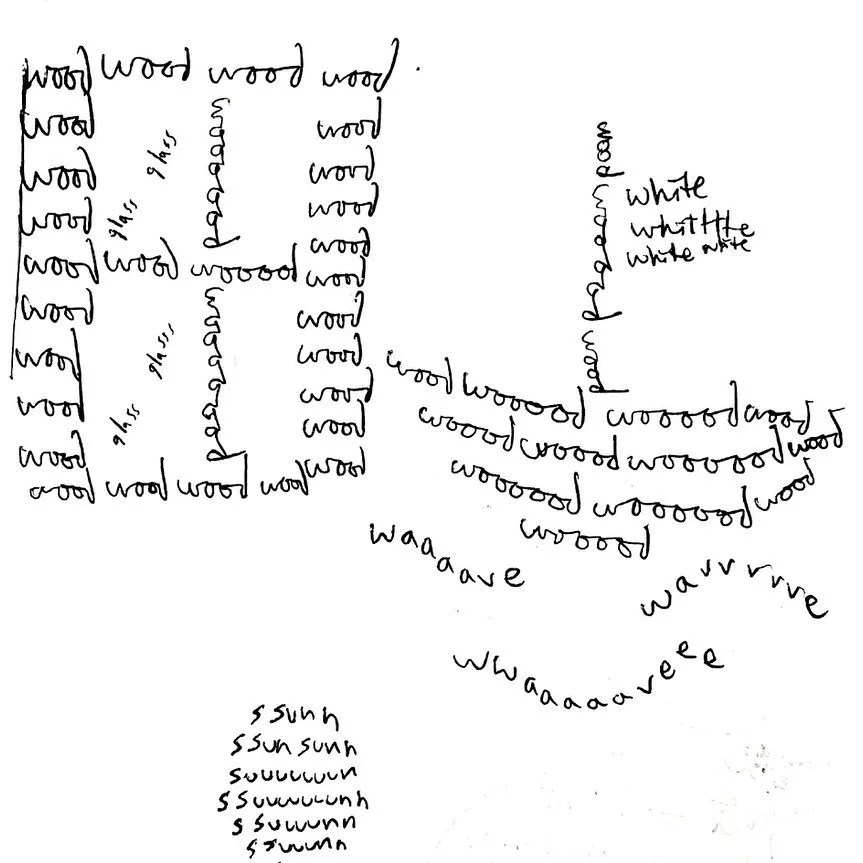 wood wood wood wood
wood
wood
wood
wood
wood wood wooood
wood
wood
wood
wood
wood wood wood wood
wood
wood
wood
wood
wood
wood
wood
wood
wood
wood
glass
glass
glasss
glass
wooooood
woooooood
wood
wooooood
wood
white
whitttte
white white
wood wooooood wooooood wood
wooood wooood wooooood wood
woooooood wooooood wood
wooooood
waaaave
wavvrrve
wwaaaaaveeee
ssunn
ssun sunn
suuuuuuun
ssuuuuuunn
ssuuunn
ssuuunn